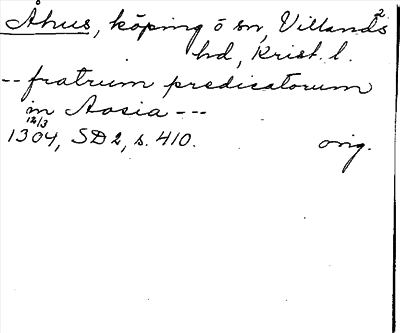 Åhus, köping ö sn, Villands
2
hd, Krist. l.
-- fratrum predicatorum
in Aosia ---
12/3
1304, SD 2, s. 410. orig.